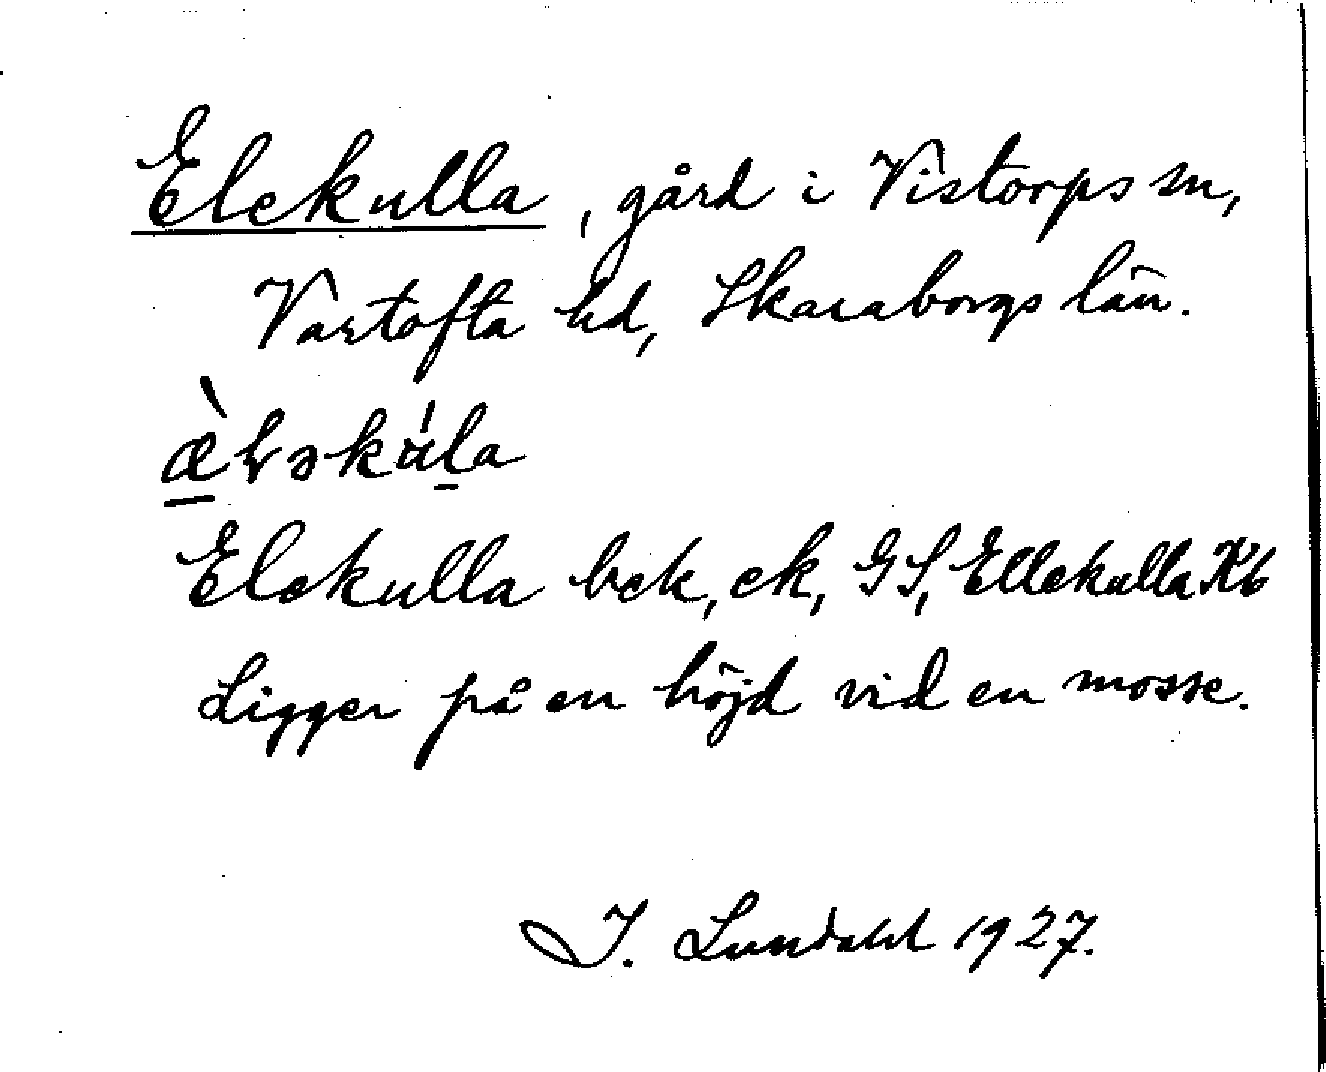 Elekulla, gård i Vistorps sn,
Vartofta hd, Skaraborgs län.
Elekulla bek, ek, GS, Ellekulla Kb
Ligger på en höjd vid en mosse.
I. Lundahl 1927.